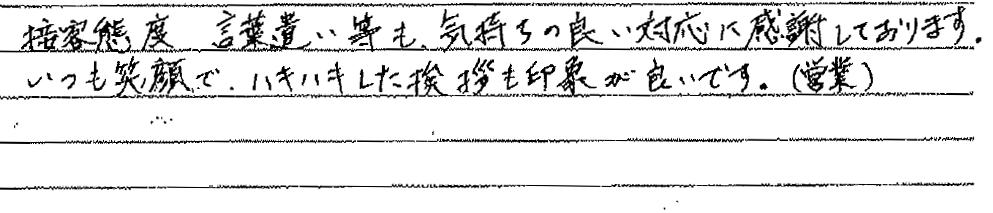 接客態度 言葉遣い等も、気持ちの良い対応に感謝しております。
いつも笑顔で、ハキハキした挨拶も印象が良いです。(営業)